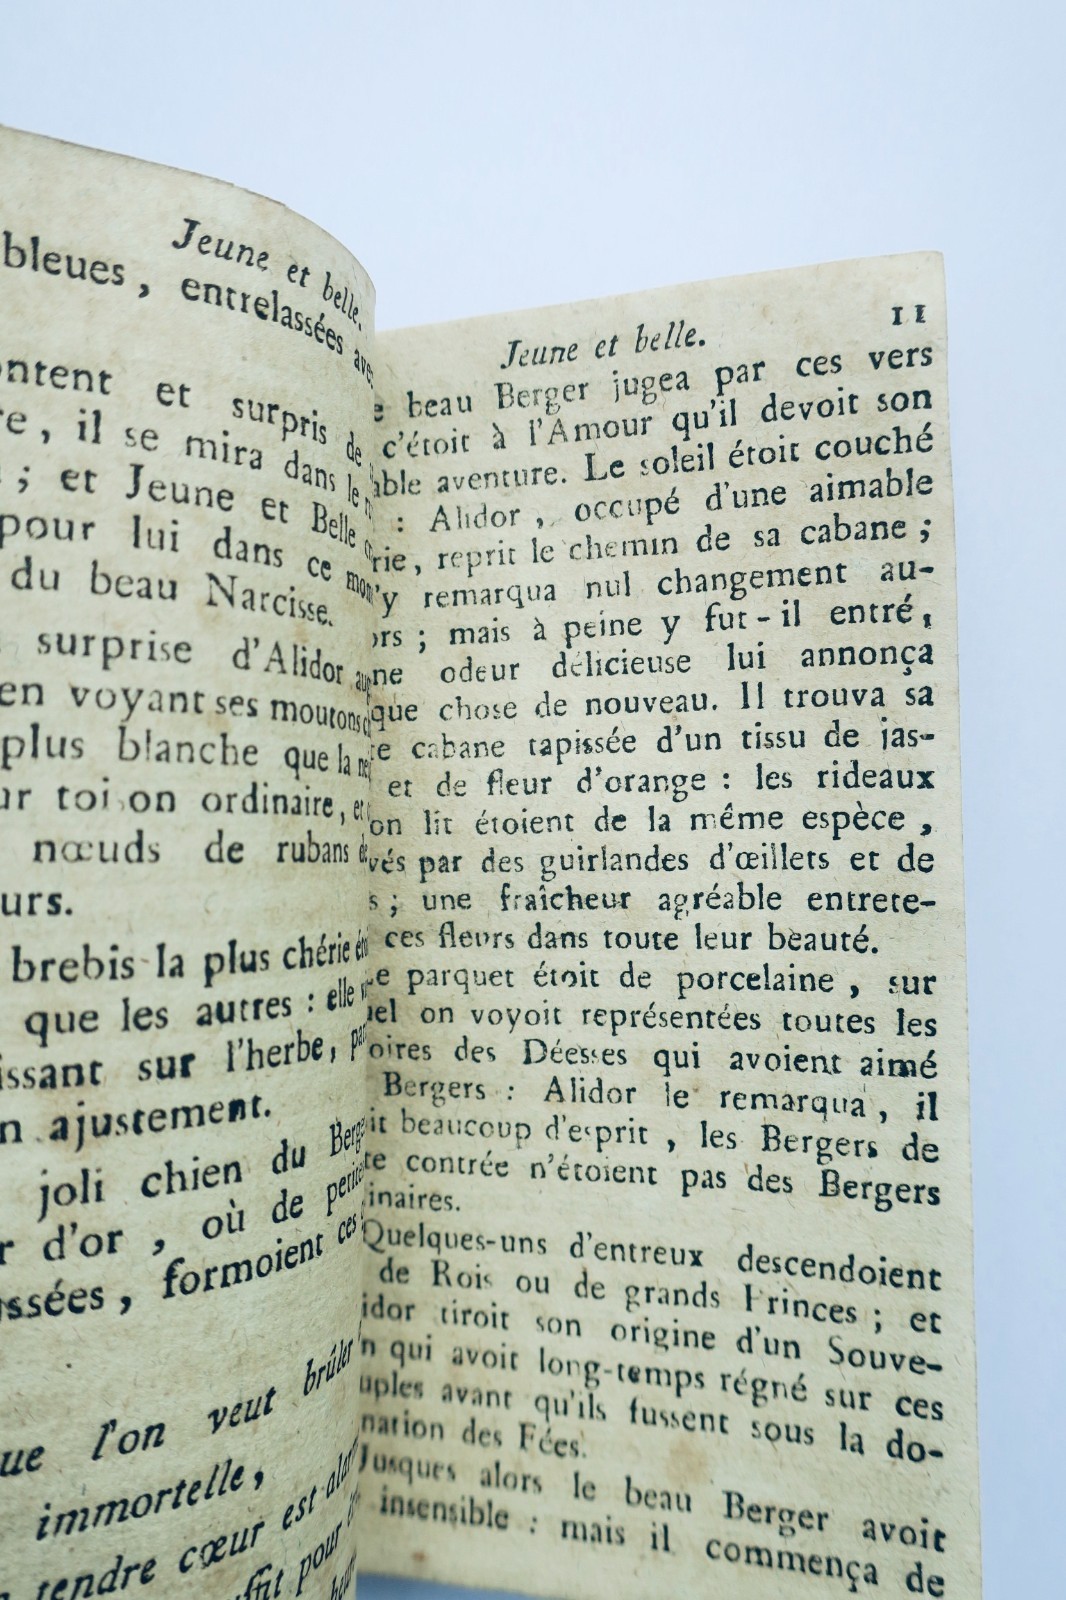 Jeune et belle.
bleues, entrelassées
et surpris de
, il se mira dans le
; et Jeune et Belle
pour lui dans ce
du beau Narcisse.
surprise d'Alidor
en voyant ses moutons
plus blanche que la
toi on ordinaire,
nœuds de rubans
brebis la plus chérie
que les autres : elle
sur l'herbe,
ajustement.
joli chien du
d'or, où de
, formoient ces
l'on veut brûler
immortelle,
tendre cœur est
pour
Jeune et belle. 11
beau Berger jugea par ces vers
c'étoit à l'Amour qu'il devoit son
aventure. Le soleil étoit couché
: Alidor, occupé d'une aimable
reprit le chemin de sa cabane ;
remarqua nul changement au-
; mais à peine y fut-il entré,
odeur délicieuse lui annonça
chose de nouveau. Il trouva sa
cabane tapissée d'un tissu de jas-
et de fleur d'orange : les rideaux
lit étoient de la même espèce,
par des guirlandes d'œillets et de
; une fraîcheur agréable entrete-
ces fleurs dans toute leur beauté.
parquet étoit de porcelaine, sur
on voyoit représentées toutes les
des Déesses qui avoient aimé
Bergers : Alidor le remarqua, il
beaucoup d'esprit, les Bergers de
contrée n'étoient pas des Bergers
inaires.
Quelques-uns d'entreux descendoient
de Rois ou de grands Princes ; et
tiroit son origine d'un Souve-
qui avoit long-temps régné sur ces
avant qu'ils fussent sous la do-
nation des Fées.
Jusques alors le beau Berger avoit
insensible : mais il commença de